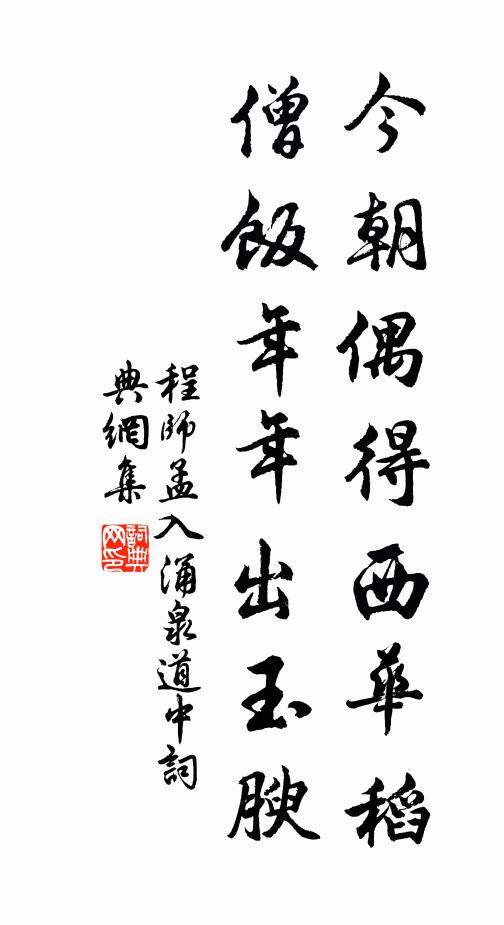 今朝偶得西華稻
僧飯年年出玉腴
程師孟入涌泉道中詞
典網集
詞典網印